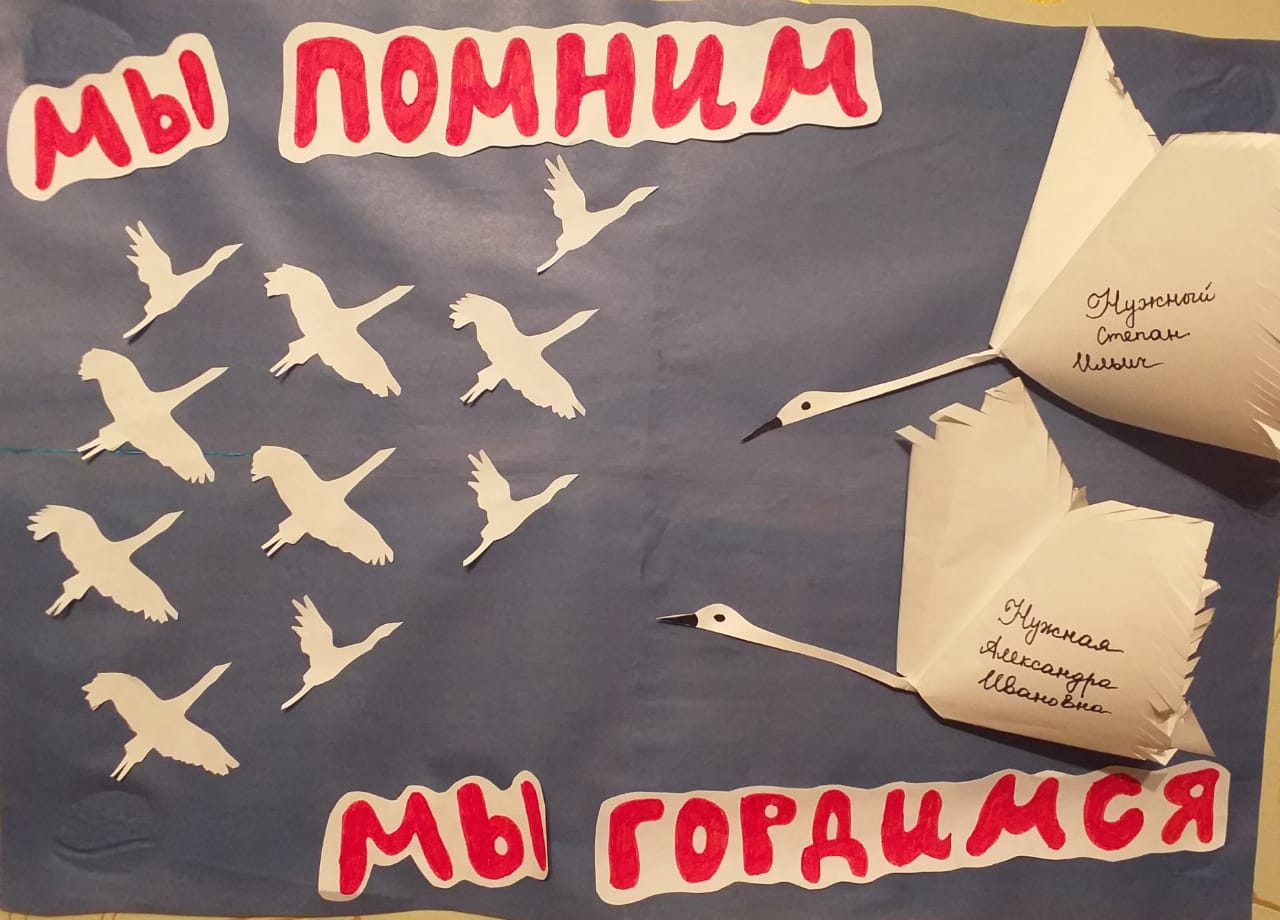 МЫ ПОМНИМ
Нужный
Степан
Ильич
Нужная
Александра
Ивановна
МЫ ГОРДИМСЯ